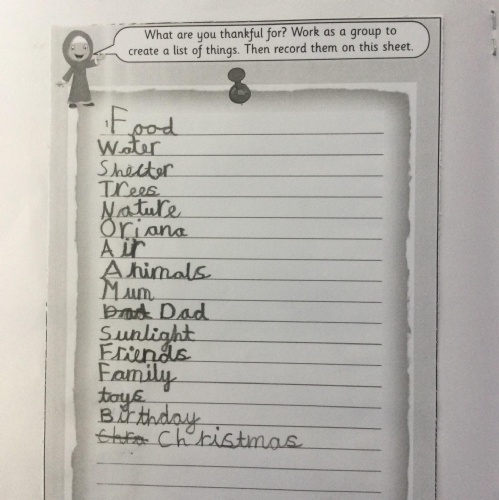 What are you thankful for? Work as a group to
create a list of things. Then record them on this sheet.
Food
Water
Shelter
Trees
Nature
Oriana
Air
Animals
Mum
Dad Dad
Sunlight
Friends
Family
toys
Birthday
Chra Christmas